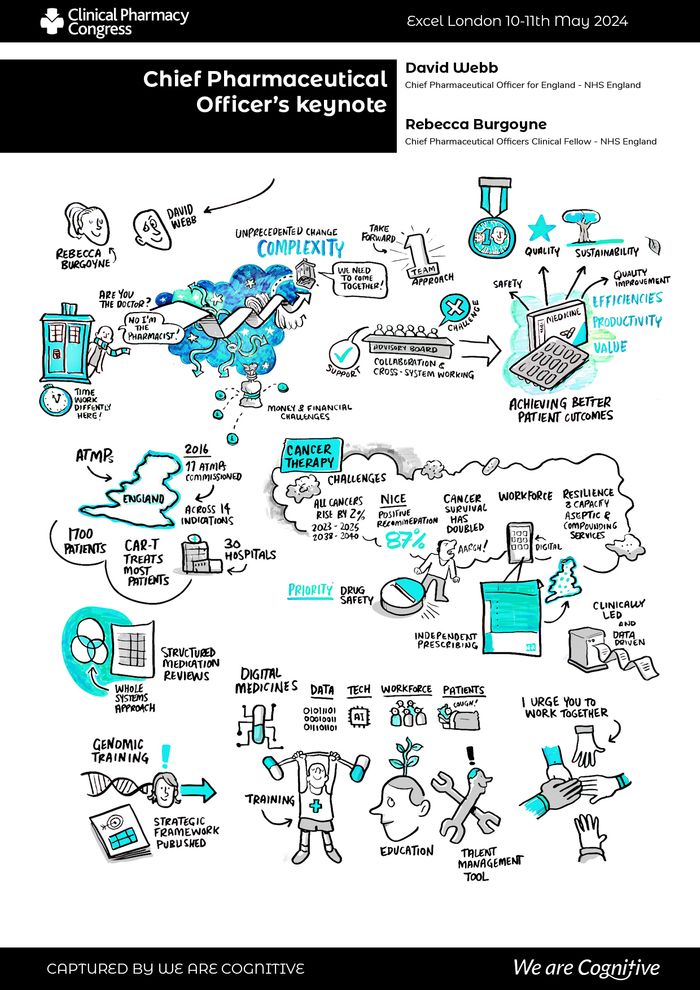 Clinical Pharmacy
Congress
Excel London 10-11th May 2024
Chief Pharmaceutical
Officer's keynote
David Webb
Chief Pharmaceutical Officer for England - NHS England
Rebecca Burgoyne
Chief Pharmaceutical Officers Clinical Fellow - NHS England
REBECCA
BURGOYNE
DAVID
WEBB
ARE YOU
THE DOCTOR?
NO I'M
THE
PHARMACIST!
TIME
WORK
DIFFENTLY
HERE!
UNPRECEDENTED CHANGE
COMPLEXITY
WE NEED
TO COME
TOGETHER!
MONEY & FINANCIAL
CHALLENGES
TAKE
FORWARD
1
TEAM
APPROACH
SUPPORT
CHALLENGE
ADVISORY BOARD
COLLABORATION &
CROSS-SYSTEM WORKING
QUALITY
SUSTAINABILITY
SAFETY
QUALITY
IMPROVEMENT
EFFICIENCIES
PRODUCTIVITY
VALUE
MEDICINE
ACHIEVING BETTER
PATIENT OUTCOMES
ATMPs
ENGLAND
2016
11 ATMPs
COMMISSIONED
ACROSS 14
INDICATIONS
30
HOSPITALS
CAR-T
TREATS
MOST
PATIENTS
1700
PATIENTS
CANCER
THERAPY
CHALLENGES
ALL CANCERS
RISE BY 2%
2023 - 2025
2038 - 2040
NICE
POSITIVE
RECOMMEDATION
87%
CANCER
SURVIVAL
HAS
DOUBLED
WORKFORCE
DIGITAL
RESILIENCE
& CAPACITY
ASEPTIC &
COMPOUNDING
SERVICES
AARGH!
PRIORITY
DRUG
SAFETY
INDEPENDENT
PRESCRIBING
CLINICALLY
LED
AND
DATA
DRIVEN
STRUCTURED
MEDICATION
REVIEWS
WHOLE
SYSTEMS
APPROACH
DIGITAL
MEDICINES
DATA
01011101
00010011
01110101
TECH
AI
WORKFORCE
PATIENTS
COUGH!
I URGE YOU TO
WORK TOGETHER
GENOMIC
TRAINING
STRATEGIC
FRAMEWORK
PUBLISHED
TRAINING
EDUCATION
TALENT
MANAGEMENT
TOOL
CAPTURED BY WE ARE COGNITIVE
We are Cognitive